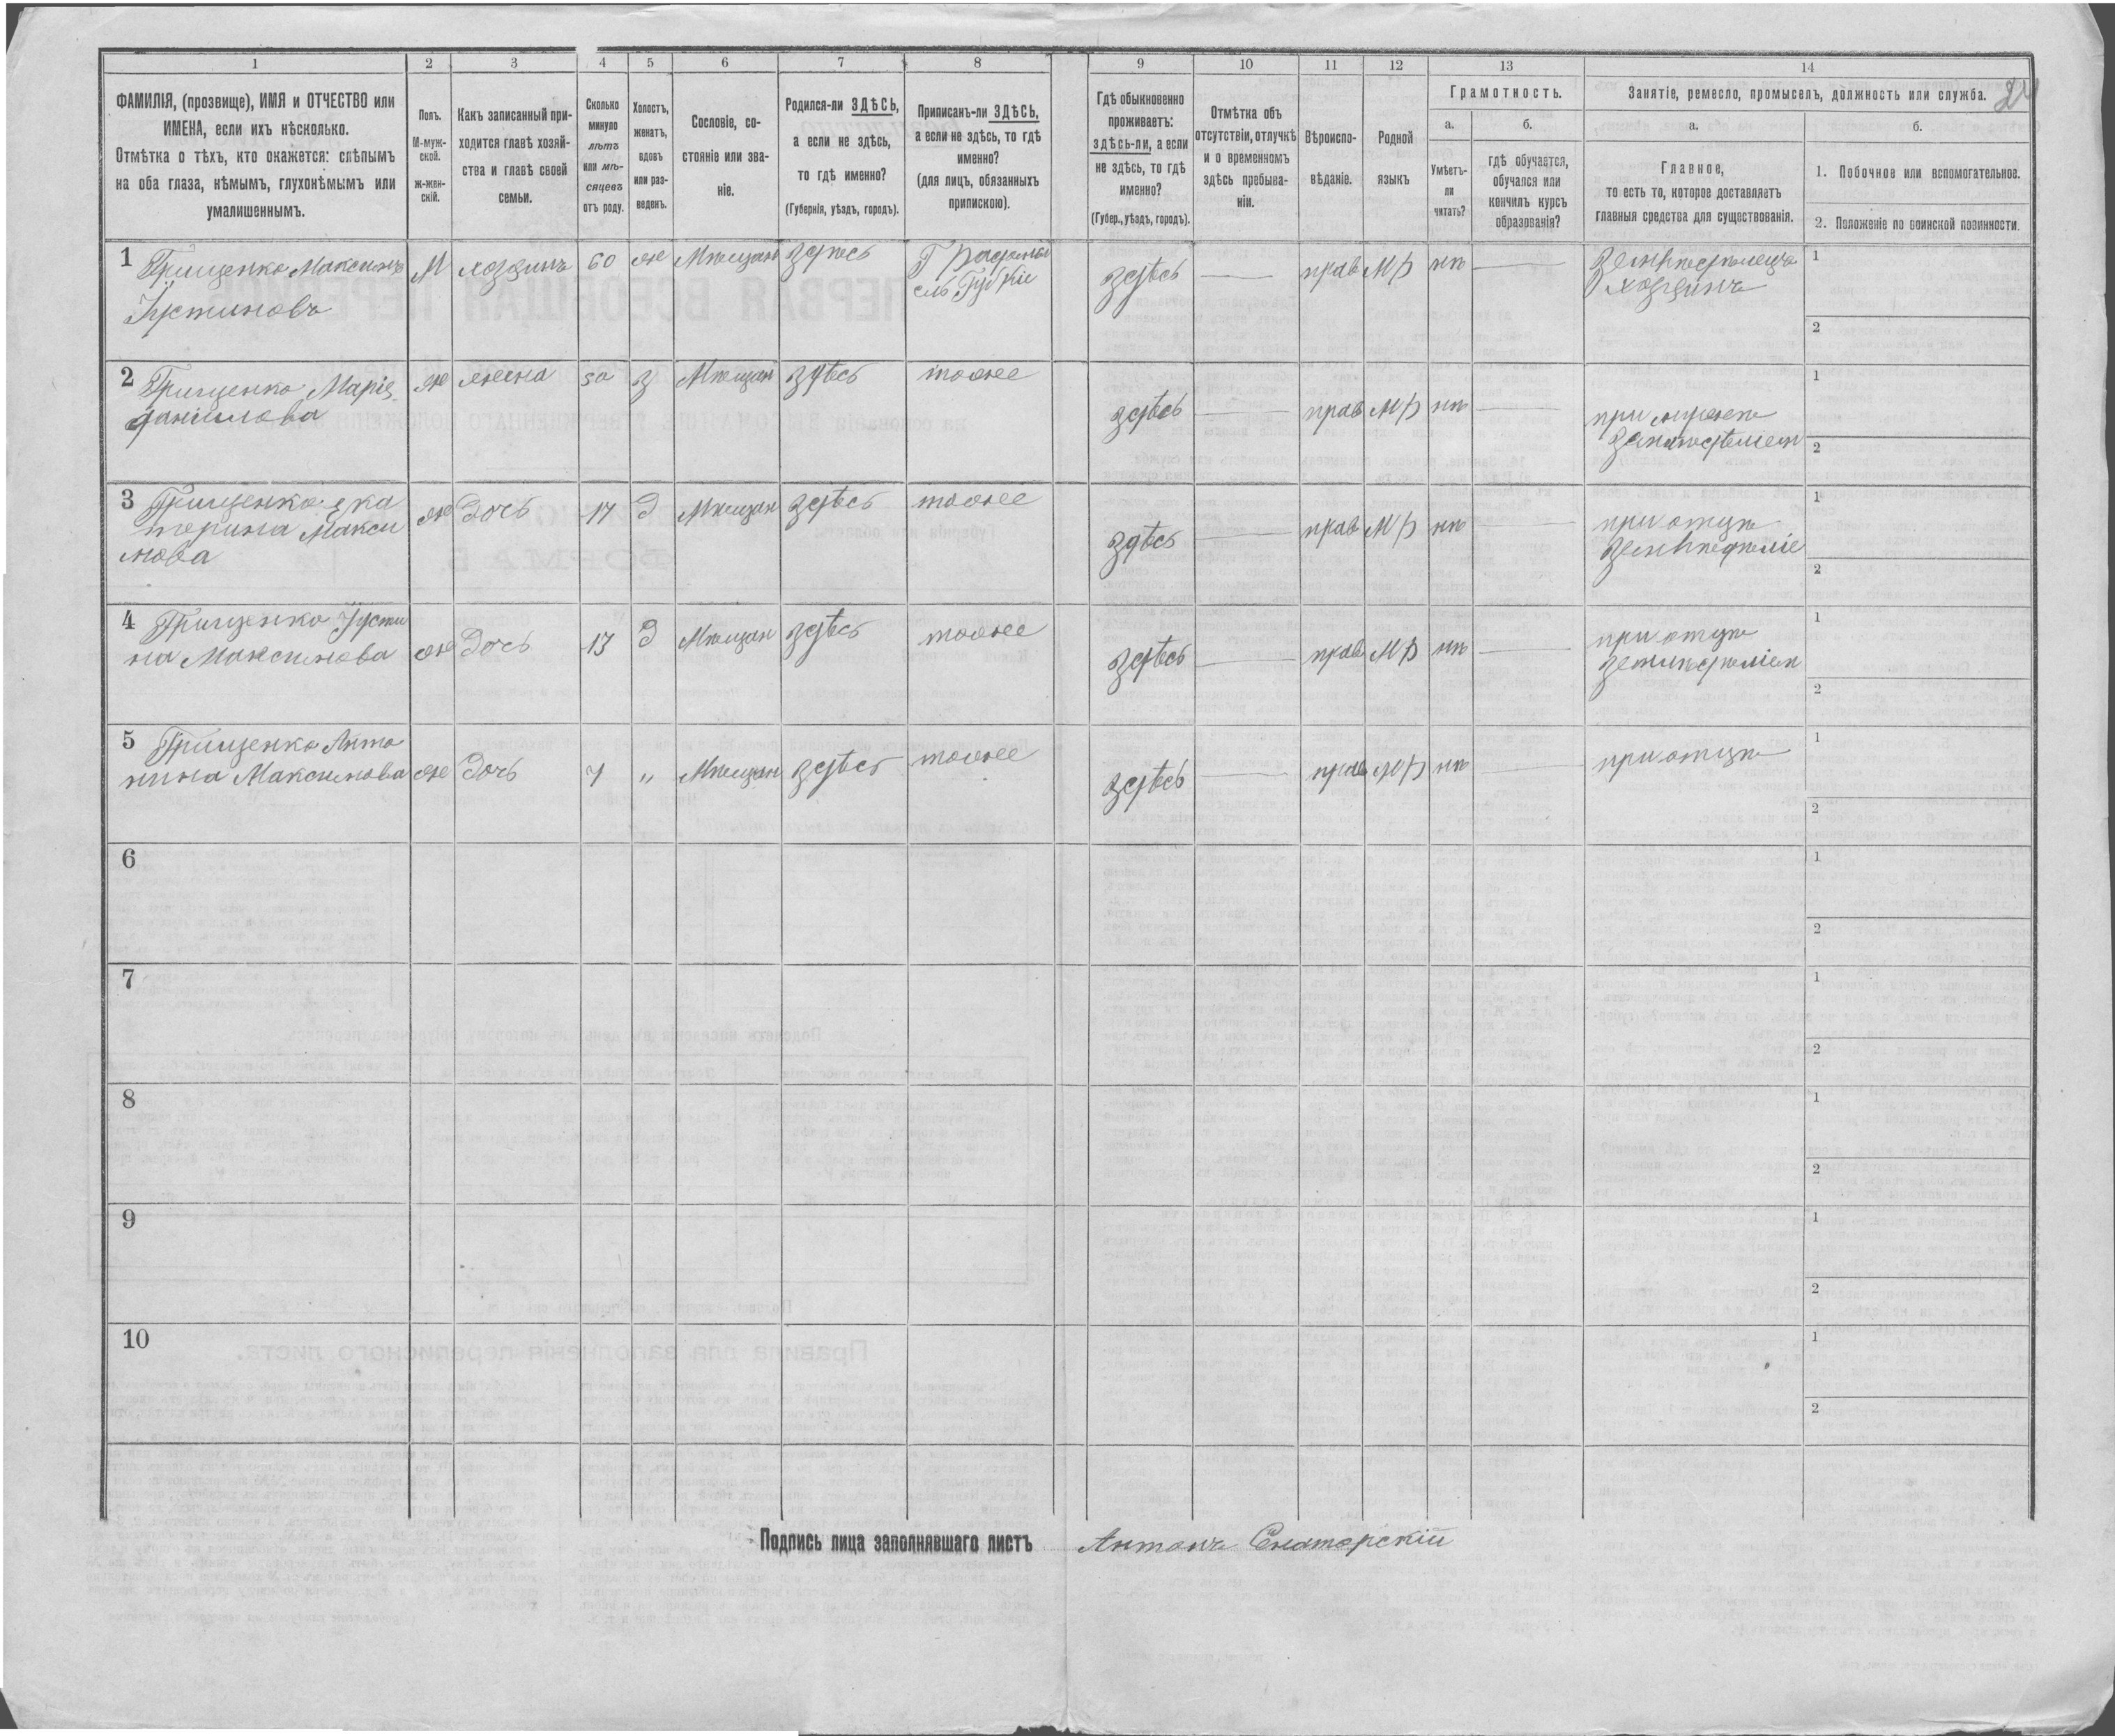 1 2 3 4 5 6 7 8 9 10 11 12 13 14
ФАМИЛІЯ, (прозвище), ИМЯ и ОТЧЕСТВО или
ИМЕНА, если ихъ нѣсколько.
Отмѣтка о тѣхъ, кто окажется: слѣпымъ
на оба глаза, нѣмымъ, глухонѣмымъ или
умалишеннымъ.
Полъ.
М-муж-
ской.
ж-жен-
скій.
Какъ записанный при-
ходится главѣ хозяй-
ства и главѣ своей
семьи.
Сколько
минуло
лѣтъ
или мѣ-
сяцевъ
отъ роду.
Холостъ,
женатъ,
вдовъ
или раз-
веденъ.
Сословіе, со-
стояніе или зва-
ніе.
Родился-ли ЗДѢСЬ,
а если не здѣсь,
то гдѣ именно?
(Губернія, уѣздъ, городъ).
Приписанъ-ли ЗДѢСЬ,
а если не здѣсь, то гдѣ
именно?
(для лицъ, обязанныхъ
припискою).
Гдѣ обыкновенно
проживаетъ:
здѣсь-ли, а если
не здѣсь, то гдѣ
именно?
(Губер., уѣздъ, городъ).
Отмѣтка объ
отсутствіи, отлучкѣ
и о временномъ
здѣсь пребыва-
ніи.
Вѣроиспо-
вѣданіе.
Родной
языкъ
Грамотность.
а.
Умѣетъ-
ли
читать?
б.
гдѣ обучается,
обучался или
кончилъ курсъ
образованія?
Занятіе, ремесло, промыселъ, должность или служба.
а.
Главное,
то есть то, которое доставляетъ
главныя средства для существованія.
б.
1. Побочное или вспомогательное.
2. Положеніе по воинской повинности.
1 Грищенко Максимъ
Устиновъ
М хозяинъ 60 ж Мѣщан здѣсь
здѣсь — прав МР нѣ —
хозяинъ
1
2
2 Грищенко Марія
Данилова
ж жена 50 з Мѣщан здѣсь тоже
здѣсь — прав МР нѣ —
при мужѣ
1
2
3 Грищенко Ека
терина Макси
мова
ж Дочь 17 д Мѣщан здѣсь тоже
здѣсь — прав МР нѣ —
при отцѣ
1
2
4 Грищенко Усти
на Максимова
ж Дочь 13 д Мѣщан здѣсь тоже
здѣсь — прав МР нѣ —
при отцѣ
1
2
5 Грищенко Анто
нина Максимова
ж Дочь 7 „ Мѣщан здѣсь тоже
здѣсь — прав МР нѣ —
при отцѣ
1
2
6
1
2
7
1
2
8
1
2
9
1
2
10
1
2
Подпись лица заполнявшаго листъ Антонъ